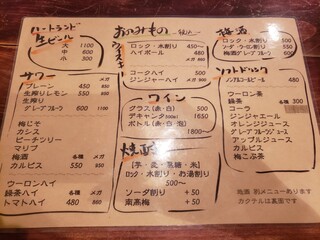 ハートランド
生ビール
大 1100
中 600
小 300
サワー 各種 メガ
プレーン 450 850
生搾りレモン 550
生搾り
グレープフルーツ 600 1100
梅じそ
カシス
ピーチツリー
マリブ
梅酒 各種 メガ
カルピス 550 950
ウーロンハイ 各種 メガ
緑茶ハイ
トマトハイ 480 880
おのみもの
ウイスキー
ロック・水割り 450〜
ハイボール 480
メガ 880
コークハイ 500
ジンジャーハイ
ワイン
グラス(赤・白) 500
デキャンタ(500ml) 1650
ボトル(赤・白・泡)
1800〜
焼酎
【芋・麦・黒糖・米】
ロック・水割り・お湯割り
500〜
ソーダ割り +50
南高梅 +50
梅酒
ロック・水割り 500
ソーダ・ウーロン割り 550
梅酒グレープフルーツ 600
ソフトドリンク
ノンアルコールビール 480
ウーロン茶
緑茶 各 300
コーラ
ジンジャエール
オレンジジュース
グレープフルーツジュース
アップルジュース
カルピス
梅こぶ茶
地酒 別メニューあります
カクテルは裏面です